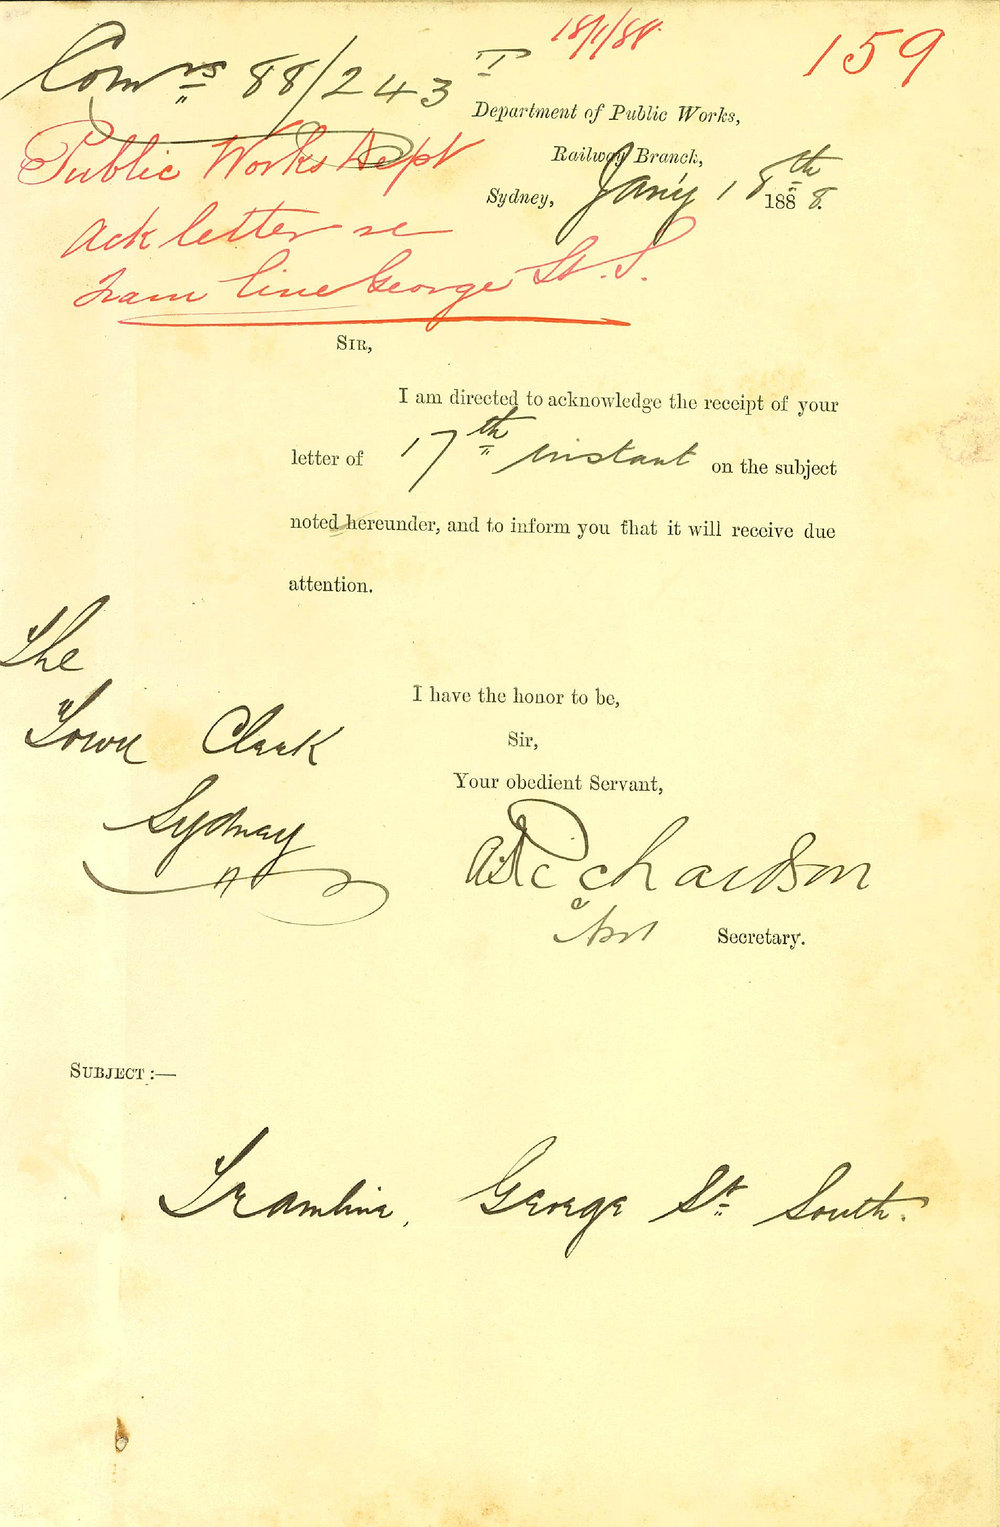 18/1/88
159
Comrs 88/243 T
Department of Public Works,
Public Works Dept
Railway Branch,
Sydney, Jany 18th 1888.
Ack letter re
Tram line George St. S.
SIR,
I am directed to acknowledge the receipt of your
letter of 17th instant on the subject
noted hereunder, and to inform you that it will receive due
attention.
The
Town Clerk
Sydney
I have the honor to be,
Sir,
Your obedient Servant,
Richardson
Secretary.
SUBJECT:—
Tramline, George St South.